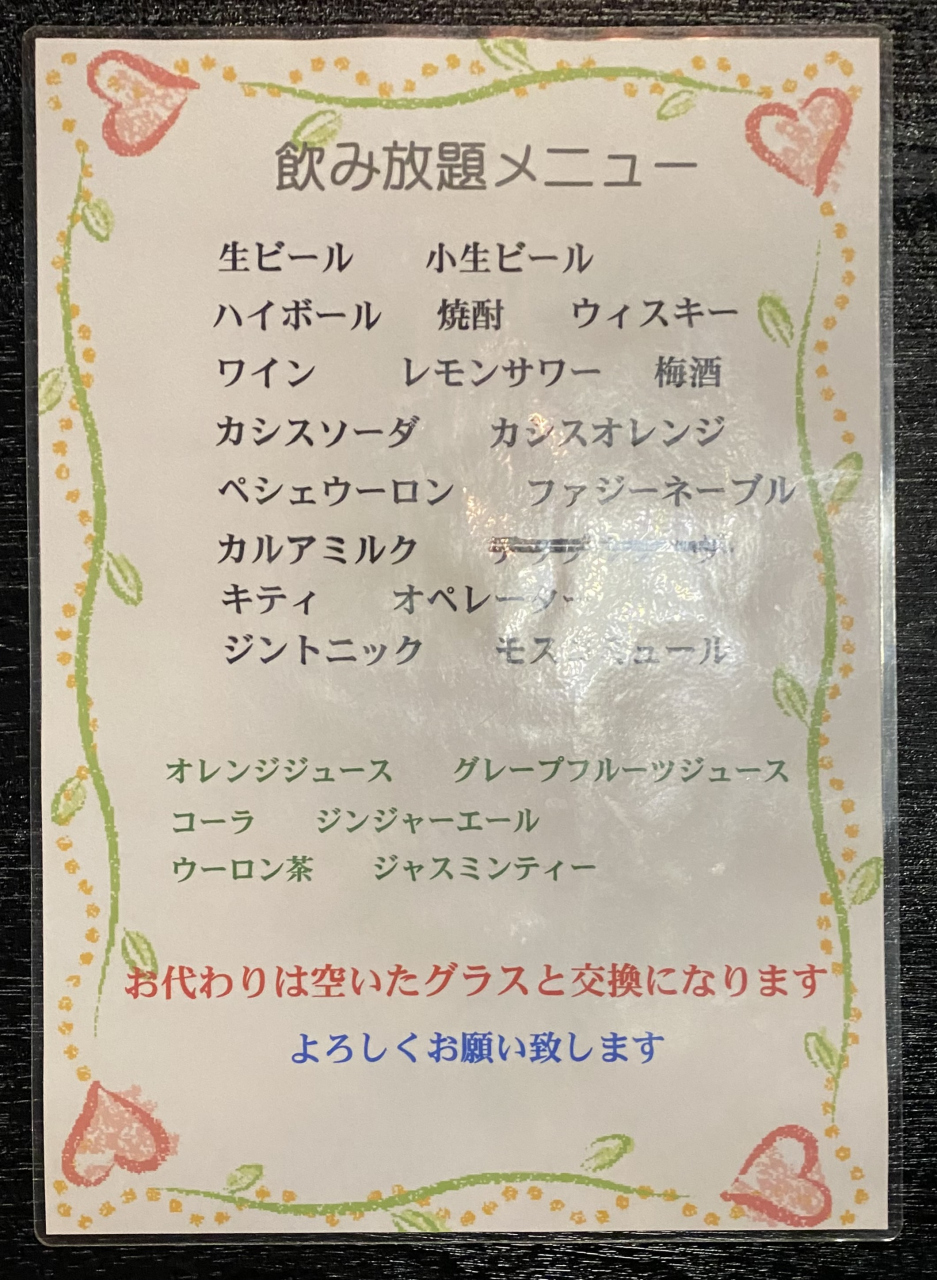 飲み放題メニュー
生ビール 小生ビール
ハイボール 焼酎 ウィスキー
ワイン レモンサワー 梅酒
カシスソーダ カシスオレンジ
ペシェウーロン ファジーネーブル
カルアミルク
キティ オペレーター
ジントニック モスコミュール
オレンジジュース グレープフルーツジュース
コーラ ジンジャーエール
ウーロン茶 ジャスミンティー
お代わりは空いたグラスと交換になります
よろしくお願い致します